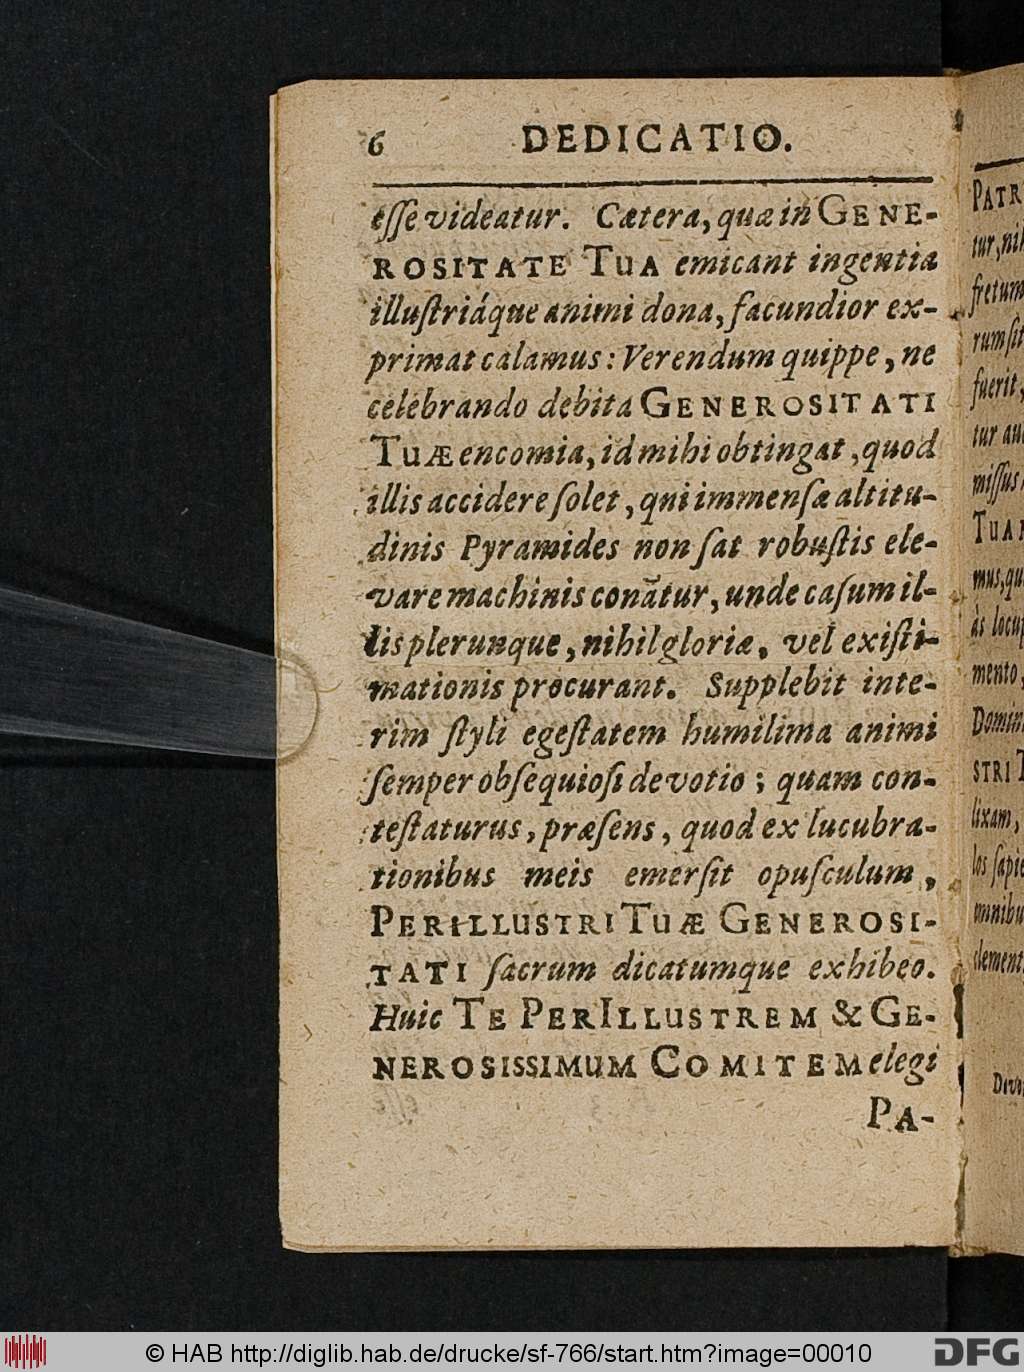 6 DEDICATIO.
esse videatur. Cætera, quæ in GENE-
ROSITATE TUA emicant ingentia
illustriáque animi dona, facundior ex-
primat calamus: Verendum quippe, ne
celebrando debita GENEROSITATI
TUÆ encomia, id mihi obtingat, quod
illis accidere solet, qui immensæ altitu-
dinis Pyramides non sat robustis ele-
vare machinis conãtur, unde casum il-
lis plerunque, nihil gloriæ, vel existi-
mationis procurant. Supplebit inte-
rim styli egestatem humilima animi
semper obsequiosi devotio; quam con-
testaturus, præsens, quod ex lucubra-
tionibus meis emersit opusculum,
PERILLUSTRI TUÆ GENEROSI-
TATI sacrum dicatumque exhibeo.
Huic TE PERILLUSTREM & GE-
NEROSISSIMUM COMITEM elegi
PA-
PATR
tur, nih
fretum
rum sit
fuerit,
tur au
missus
TUA
mus, qu
às locu
mento,
Domin
STRI T
lixam,
los sapie
omnibu
clement
Devo
© HAB http://diglib.hab.de/drucke/sf-766/start.htm?image=00010
DFG